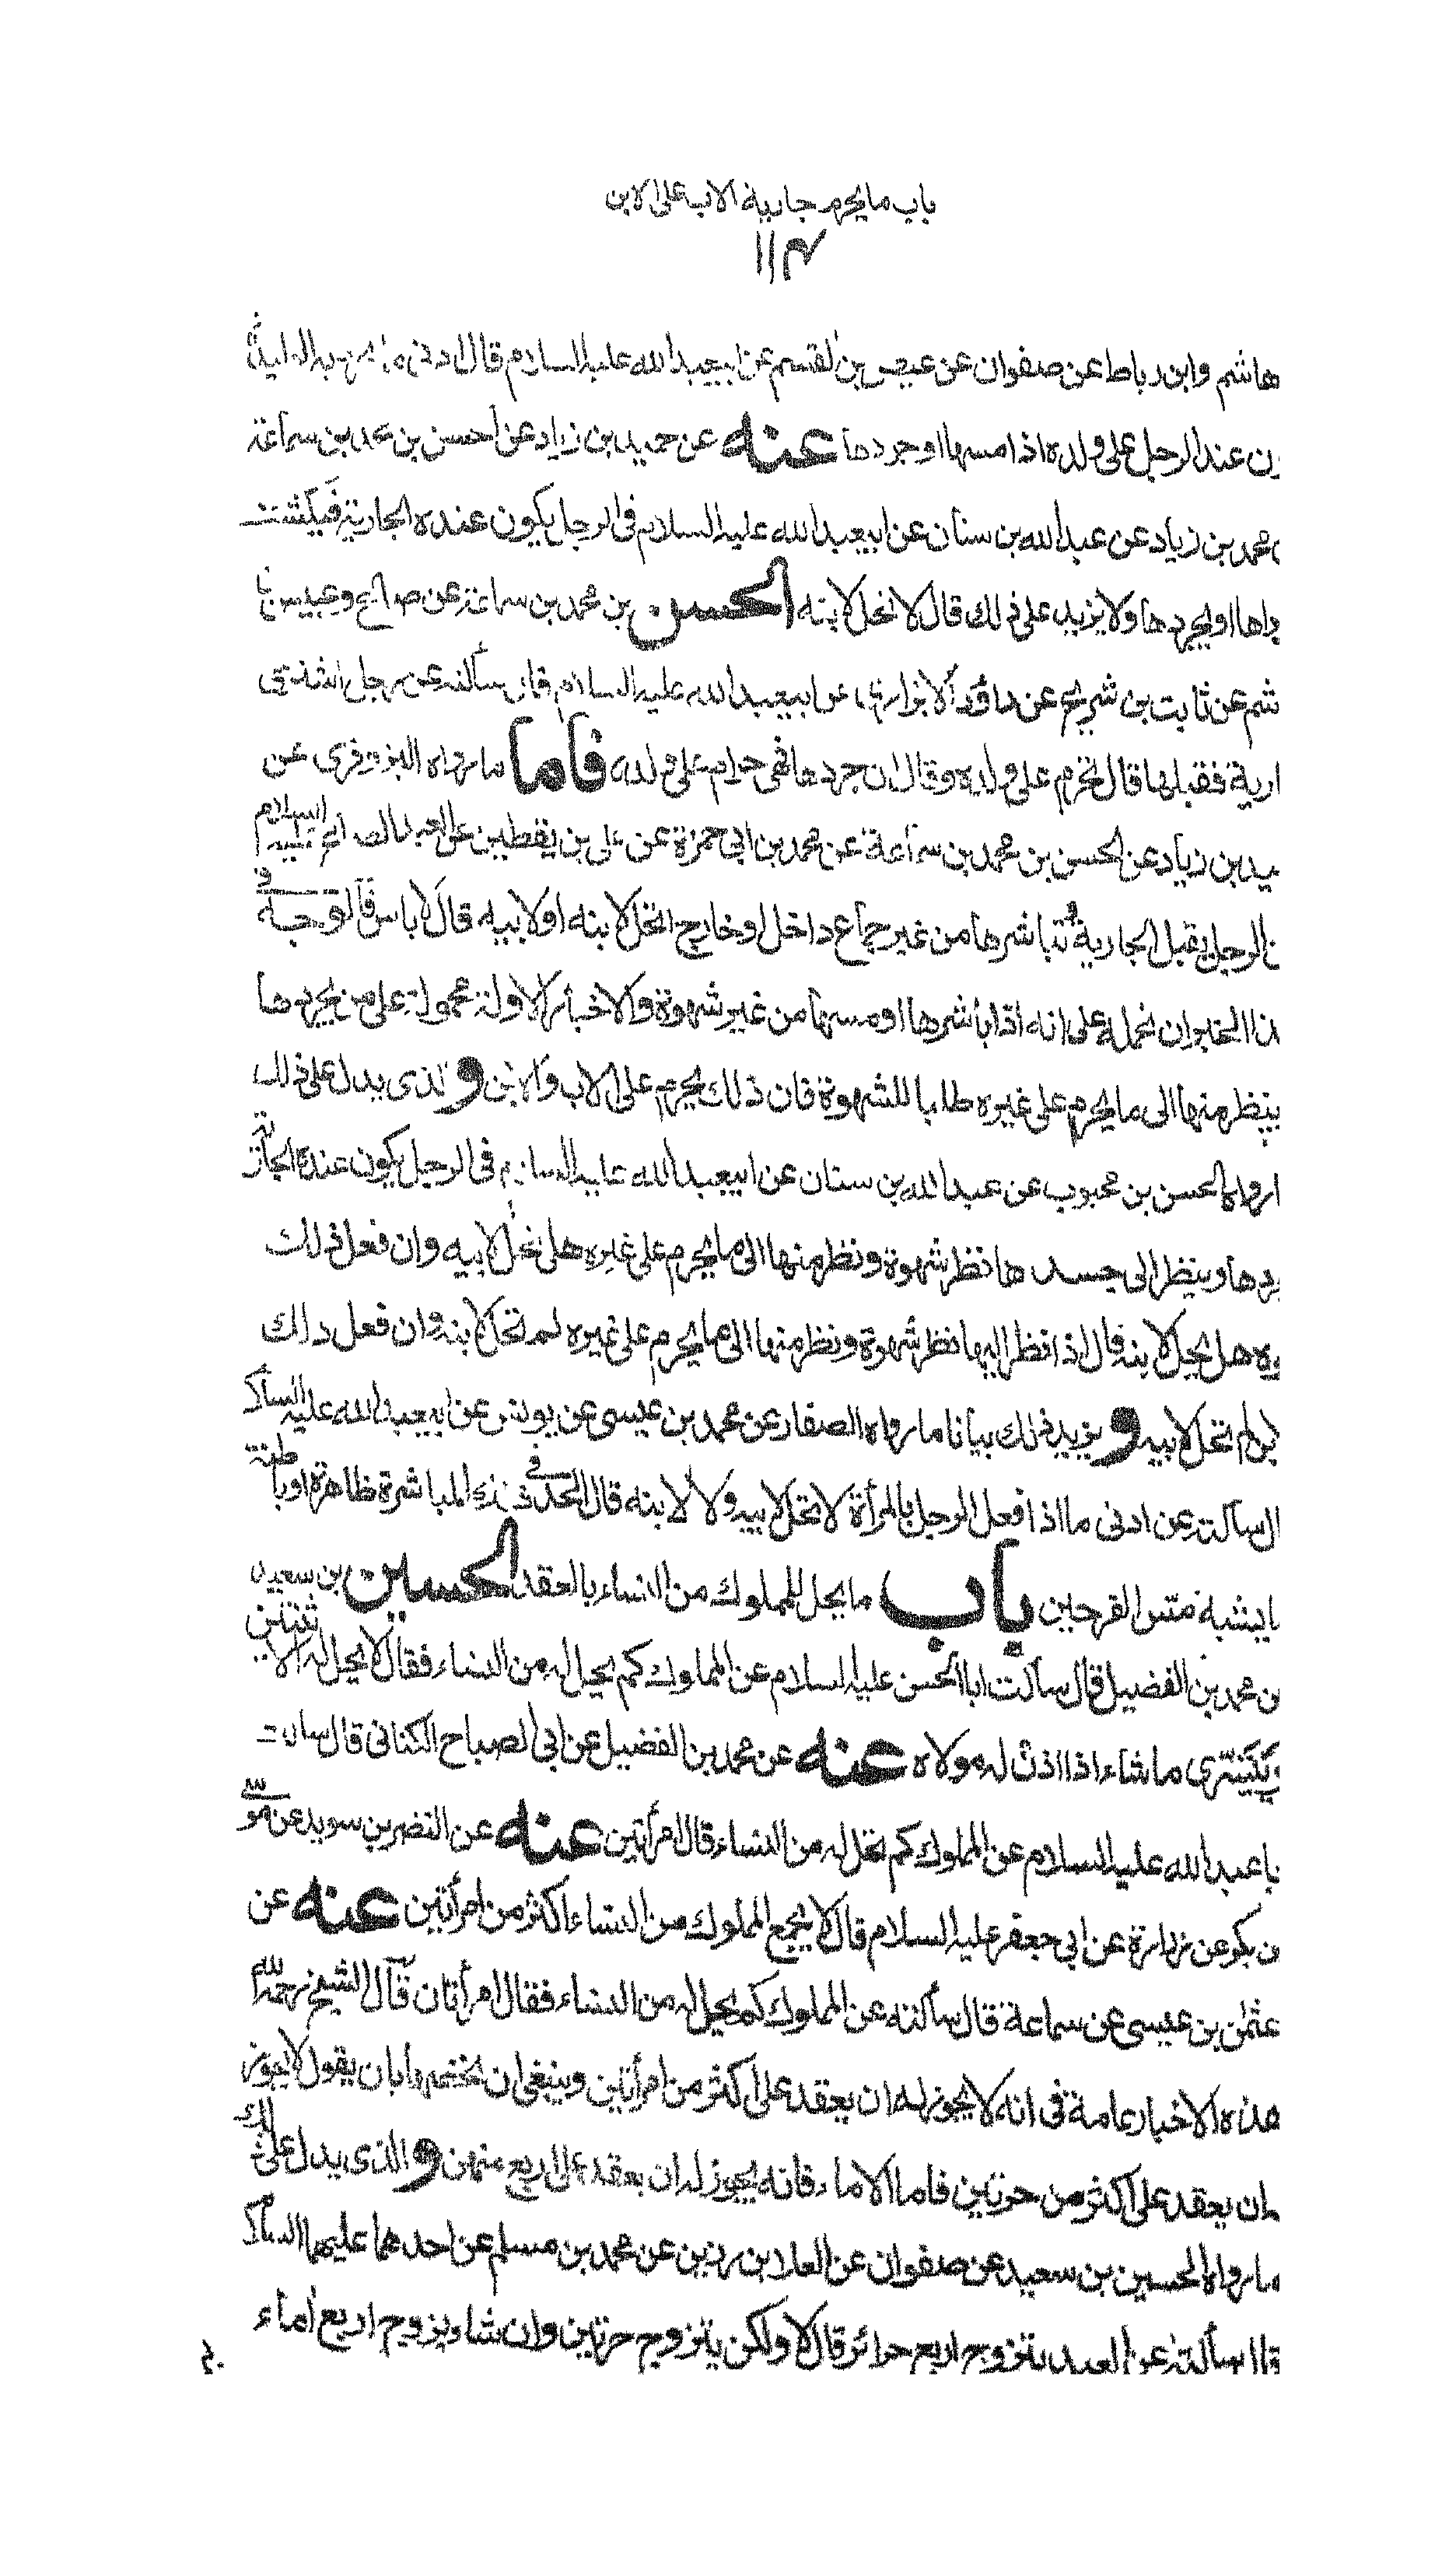 باب ما يحرم جارية الاب على الابن
١١٣
هاشم وابن رباط عن صفوان عن عيص بن القسم عن ابيعبد الله عليه السلام قال ادنى ما
عند الرجل على ولده اذا مسها او جردها عنه عن حميد بن زياد عن الحسن بن محمد بن سماعة
محمد بن زياد عن عبد الله بن سنان عن ابيعبد الله عليه السلام فى الرجل يكون عنده الجارية فيكشف
او يجردها ولا يزيد على ذلك قال لا تحل لابنه الحسن بن محمد بن سماعة عن صالح وعبيس بن
شم عن ثابت بن شريح عن داود الابزارى عن ابيعبد الله عليه السلام قال سألته عن رجل اشترى
ارية فقبلها قال تحرم على ولده وقال ان جردها فهى حرام على ولده فاما ما رواه البزوفرى عن
يد بن زياد عن الحسن بن محمد بن سماعة عن محمد بن ابى حمزة عن على بن يقطين عن العبد الصالح عليه السلام
الرجل يقبل الجارية تباشرها من غير جماع داخل او خارج اتحل لابنه او لابيه قال لا باس فالوجه فى
ذا الخبر ان نحمله على انه اذا باشرها او مسها من غير شهوة والاخبار الاولة محمولة على من يجردها
ينظر منها الى ما يحرم على غيره طلبا للشهوة فان ذلك يحرم على الاب والابن و الذى يدل على ذلك
ارواه الحسن بن محبوب عن عبد الله بن سنان عن ابيعبد الله عليه السلام فى الرجل يكون عنده الجارية
ردها وينظر الى جسدها نظر شهوة ونظر منها الى ما يحرم على غيره هل تحل لابيه وان فعل ذلك
وه هل يحل لابنه قال اذا نظر اليها نظر شهوة ونظر منها الى ما يحرم على غيره لم تحل لابنه وان فعل ذلك
لم تحل لابيه و يزيد ذلك بيانا ما رواه الصفار عن محمد بن عيسى عن يونس عن ابيعبد الله عليه السلم
ال سألته عن ادنى ما اذا فعل الرجل بالمرأة لا تحل لابيه ولا لابنه قال الحد فى ذلك المباشرة ظاهرة او باطنة
ا يشبه مس الفرجين باب ما يحل للمملوك من النساء بالعقد الحسين بن سعيد
ن محمد بن الفضيل قال سألت ابا الحسن عليه السلام عن المملوك كم يحل له من النساء فقال لا يحل له الا ثنتين
ما شاء اذا اذن له مولاه عنه عن محمد بن الفضيل عن ابى الصباح الكنانى قال سألت
با عبد الله عليه السلام عن المملوك كم تحل له من النساء قال امرأتين عنه عن النضر بن سويد عن موسى
ن بكر عن زرارة عن ابى جعفر عليه السلام قال لا يجمع المملوك من النساء اكثر من امرأتين عنه عن
عثمن بن عيسى عن سماعة قال سألته عن المملوك كم يحل له من النساء فقال امرأتان قال الشيخ رحمه الله
هذه الاخبار عامة فى انه لا يجوز له ان يعقد على اكثر من امرأتين وينبغى ان نخصها بان يقول لا يجوز
ان يعقد على اكثر من حرتين فاما الاماء فانه يجوز له ان يعقد على اربع منهن و الذى يدل على ذلك
ما رواه الحسين بن سعيد عن صفوان عن العلا بن رزين عن محمد بن مسلم عن احدهما عليهما السلم
قال سألته عن العبد يتزوج اربع حرائر قال لا ولكن يتزوج حرتين وان شاء يزوج اربع اماء